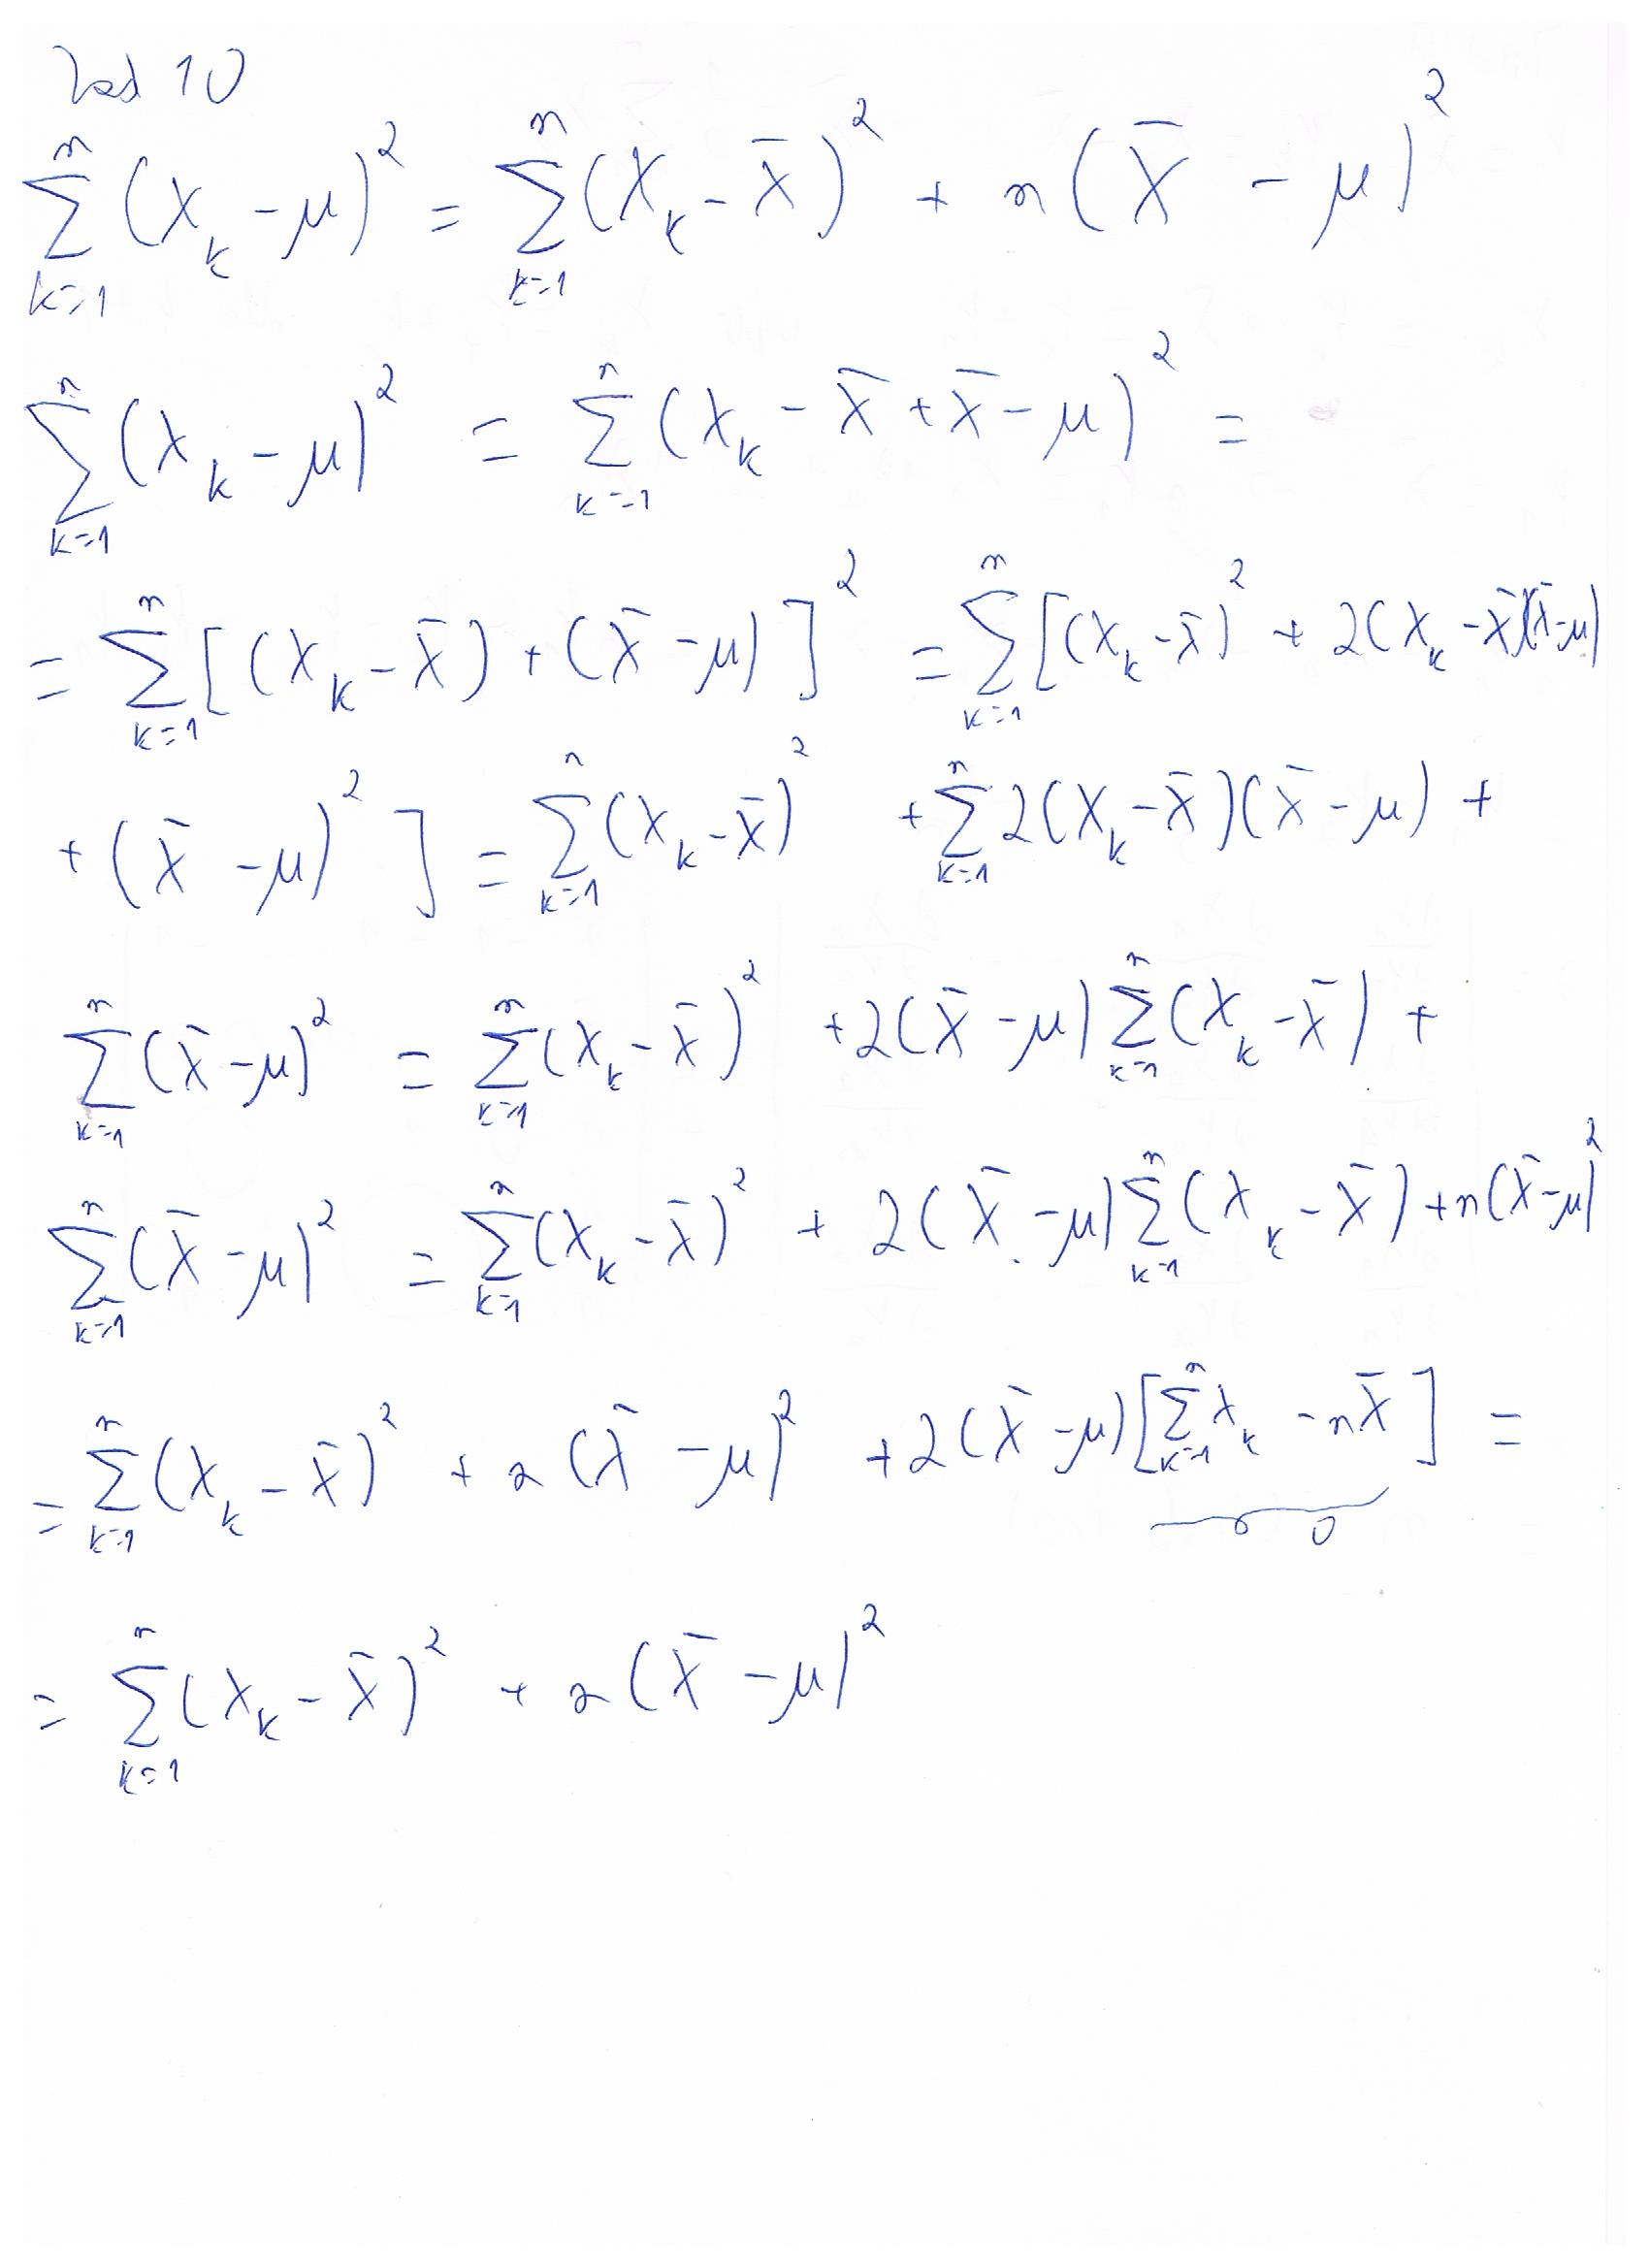 Zad 10
\sum_{k=1}^{n} (X_k - μ)^2 = \sum_{k=1}^{n} (X_k - \bar{X})^2 + n (\bar{X} - μ)^2
\sum_{k=1}^{n} (X_k - μ)^2 = \sum_{k=1}^{n} (X_k - \bar{X} + \bar{X} - μ)^2 =
= \sum_{k=1}^{n} [(X_k - \bar{X}) + (\bar{X} - μ)]^2 = \sum_{k=1}^{n} [(X_k - \bar{X})^2 + 2(X_k - \bar{X})(\bar{X} - μ)
+ (\bar{X} - μ)^2] = \sum_{k=1}^{n} (X_k - \bar{X})^2 + \sum_{k=1}^{n} 2(X_k - \bar{X})(\bar{X} - μ) +
\sum_{k=1}^{n} (\bar{X} - μ)^2 = \sum_{k=1}^{n} (X_k - \bar{X})^2 + 2(\bar{X} - μ) \sum_{k=1}^{n} (X_k - \bar{X}) +
\sum_{k=1}^{n} (\bar{X} - μ)^2 = \sum_{k=1}^{n} (X_k - \bar{X})^2 + 2(\bar{X} - μ) \sum_{k=1}^{n} (X_k - \bar{X}) + n(\bar{X} - μ)^2
= \sum_{k=1}^{n} (X_k - \bar{X})^2 + n (\bar{X} - μ)^2 + 2(\bar{X} - μ) [\sum_{k=1}^{n} X_k - n\bar{X}] =
0
= \sum_{k=1}^{n} (X_k - \bar{X})^2 + n (\bar{X} - μ)^2